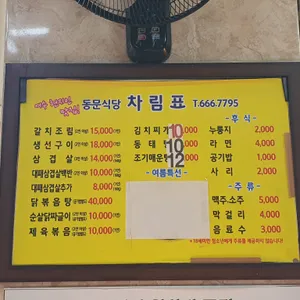 동문식당 차림표 T.666.7795
갈치조림 15,000
생선구이 18,000
삼겹살 14,000
대패삼겹살백반 10,000
대패삼겹살추가 8,000
닭볶음탕 40,000
순살닭파글이 10,000
제육볶음 10,000
김치찌개 10,000
동태 10
조기매운 12
-여름특선-
-후식-
누룽지 2,000
라면 4,000
공기밥 1,000
사리 2,000
-주류-
맥주.소주 5,000
막걸리 4,000
음료수 3,000